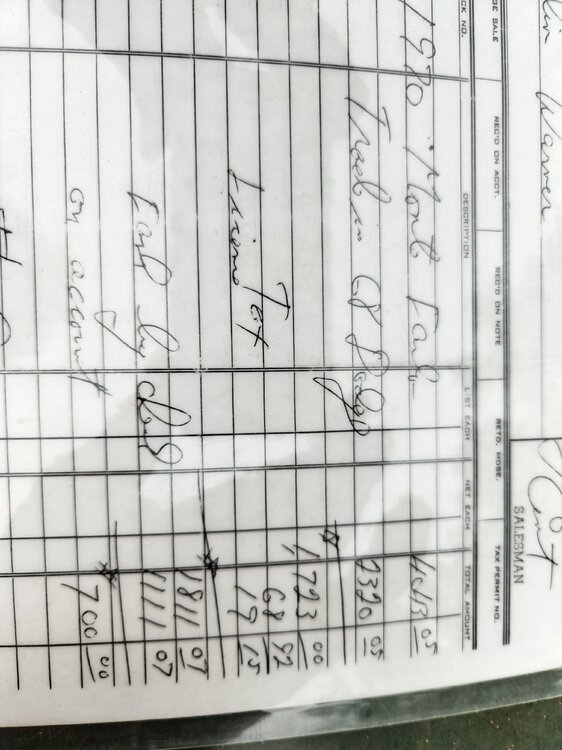 Warner
SALESMAN
GE SALE REC'D ON ACCT. REC'D ON NOTE RETD. MDSE. TAX PERMIT NO.
CK NO. DESCRIPTION LIST EACH NET EACH TOTAL AMOUNT
1970 Mont Carlo 4043 05
Trade in 68 Dodge 2320 05
1723 00
68 92
License Tax 19 15
1811 07
Paid by 1111 07
on account 700 00